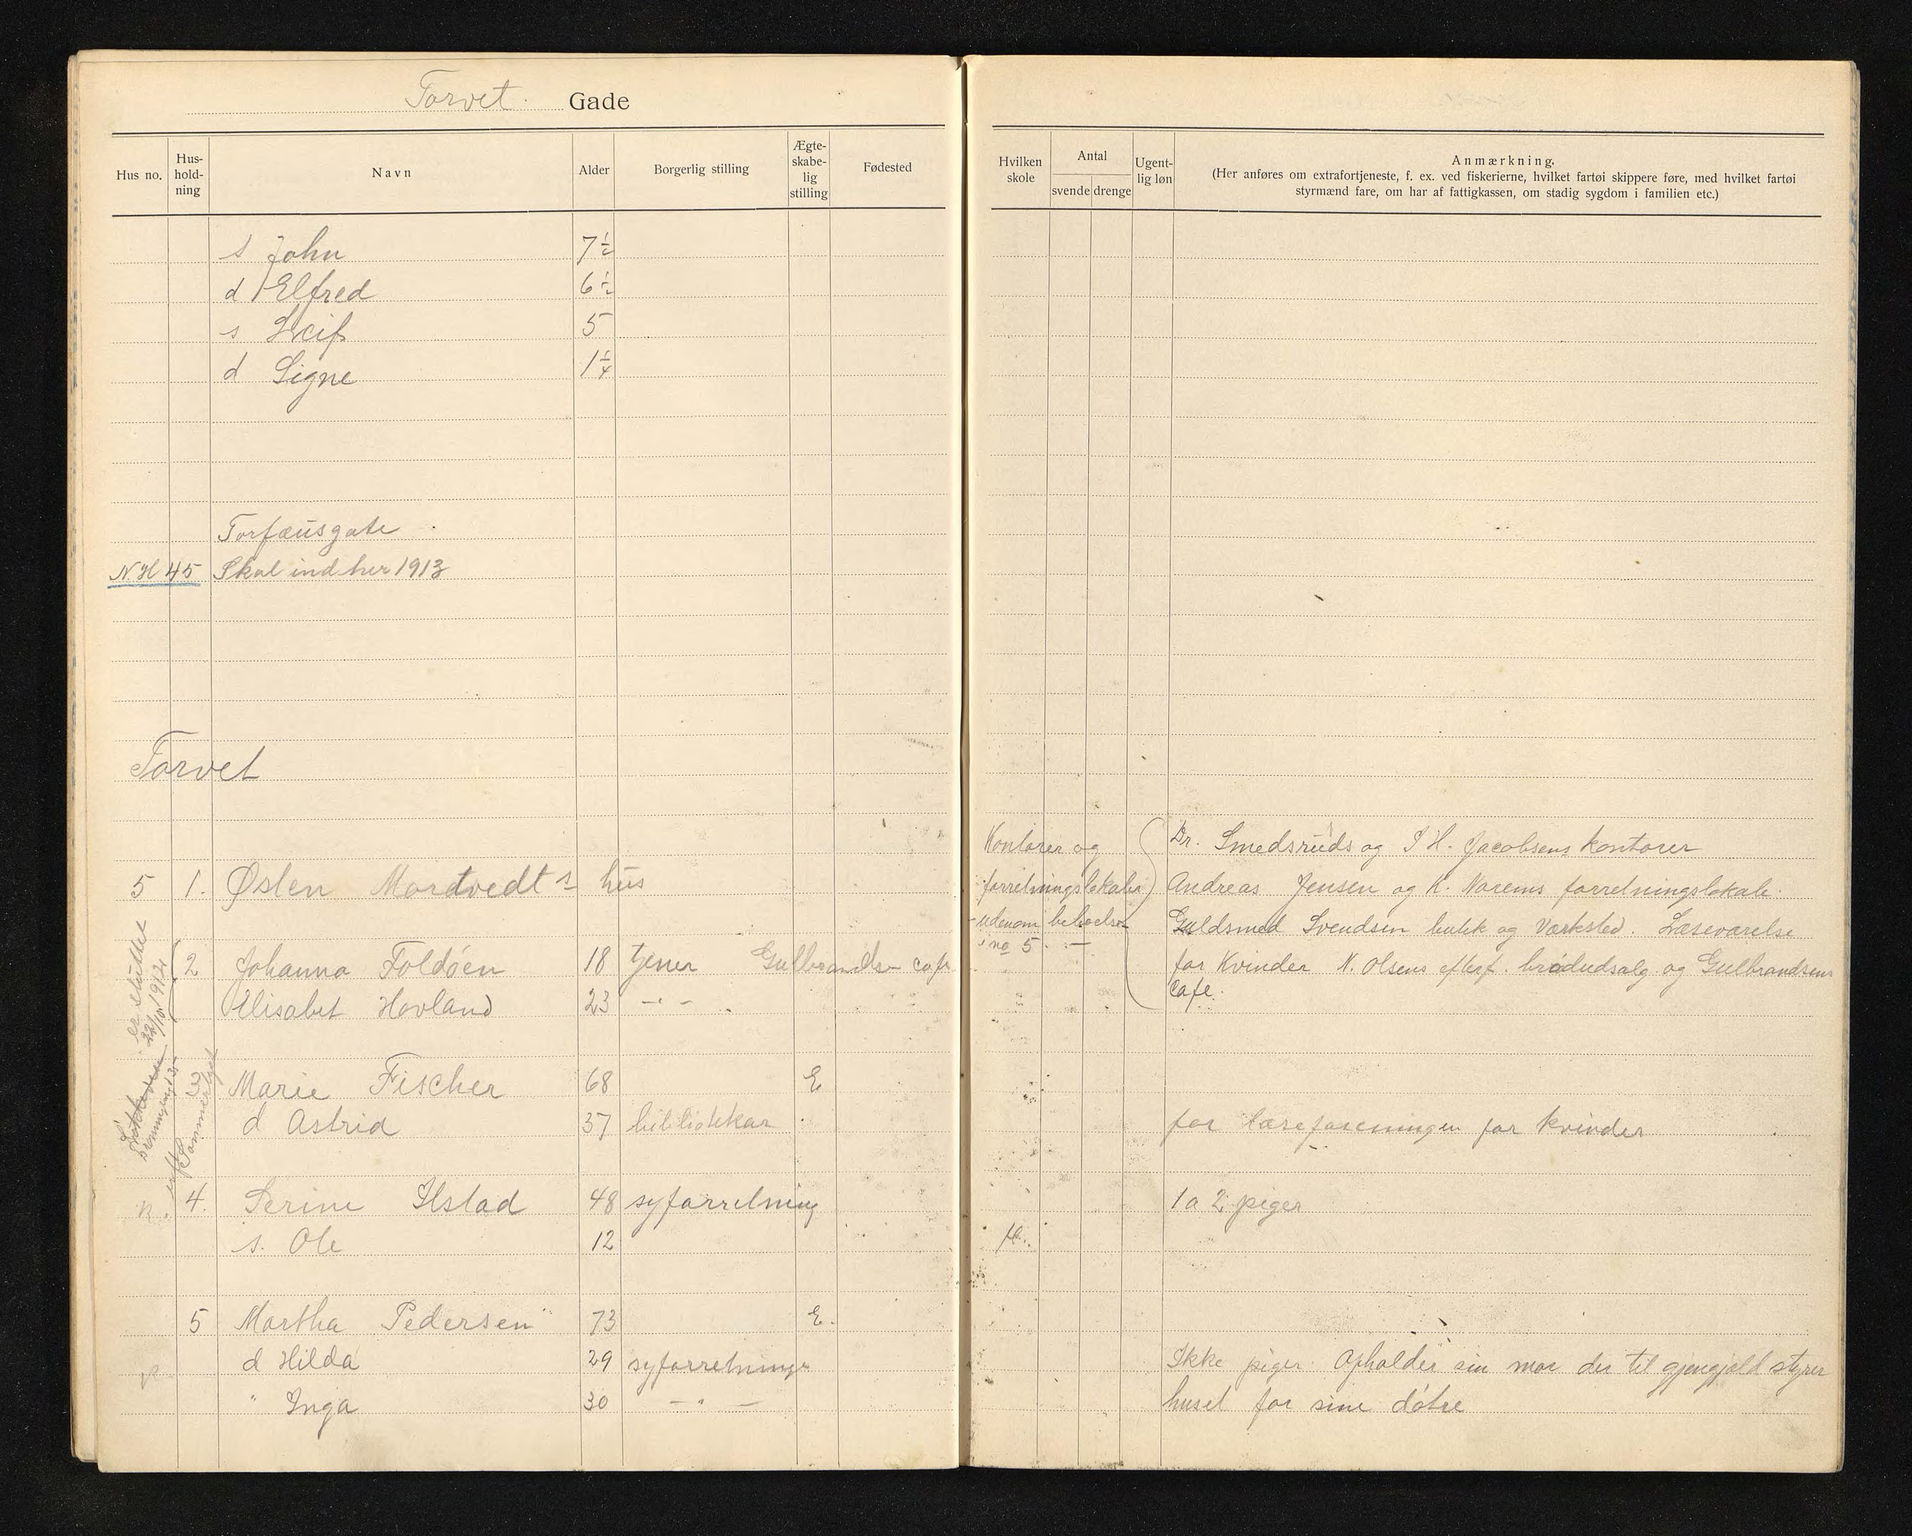 Torvet. Gade
Hus no. Hus-hold-ning Navn Alder Borgerlig stilling Ægte-skabe-lig stilling Fødested
s John 7½
d Elfred 6½
s Leif 5
d Signe 1¼
Torfæusgate
N H 45 Skal ind her 1913
Torvet
5 1. Østen Mordtvedts hus
2 Johanna Foldøen 18 tjener Gulbrands- cafe
Elisabet Hovland 23 -"-
er sluttet 22/10 1912
3 Marie Fischer 68 E
d Astrid 37 bibliotekar
4. Serine Ilstad 48 syforretning
s. Ole 12
5 Martha Pedersen 73 E.
d Hilda 29 syforretninge
" Inga 30 -"-
Hvilken skole Antal svende drenge Ugent-lig løn Anmærkning.
(Her anføres om extrafortjeneste, f. ex. ved fiskerierne, hvilket fartøi skippere føre, med hvilket fartøi
styrmænd fare, om har af fattigkassen, om stadig sygdom i familien etc.)
Kontorer og
forretningslokaler
udenom beboelse
i no 5. -
Dr. Smedsruds og I H. Jacobsens kontorer
Andreas Jensen og K. Norems forretningslokale.
Guldsmed Svendsen butik og Værksted. Læseværelse
for Kvinder N. Olsens efterf. brødudsalg og Gulbrandsens
Cafe.
for læseforeningen for kvinder
1 a 2 piger
Ikke piger. Opholder sin mor der til gjengjæld styrer
huset for sine døtre